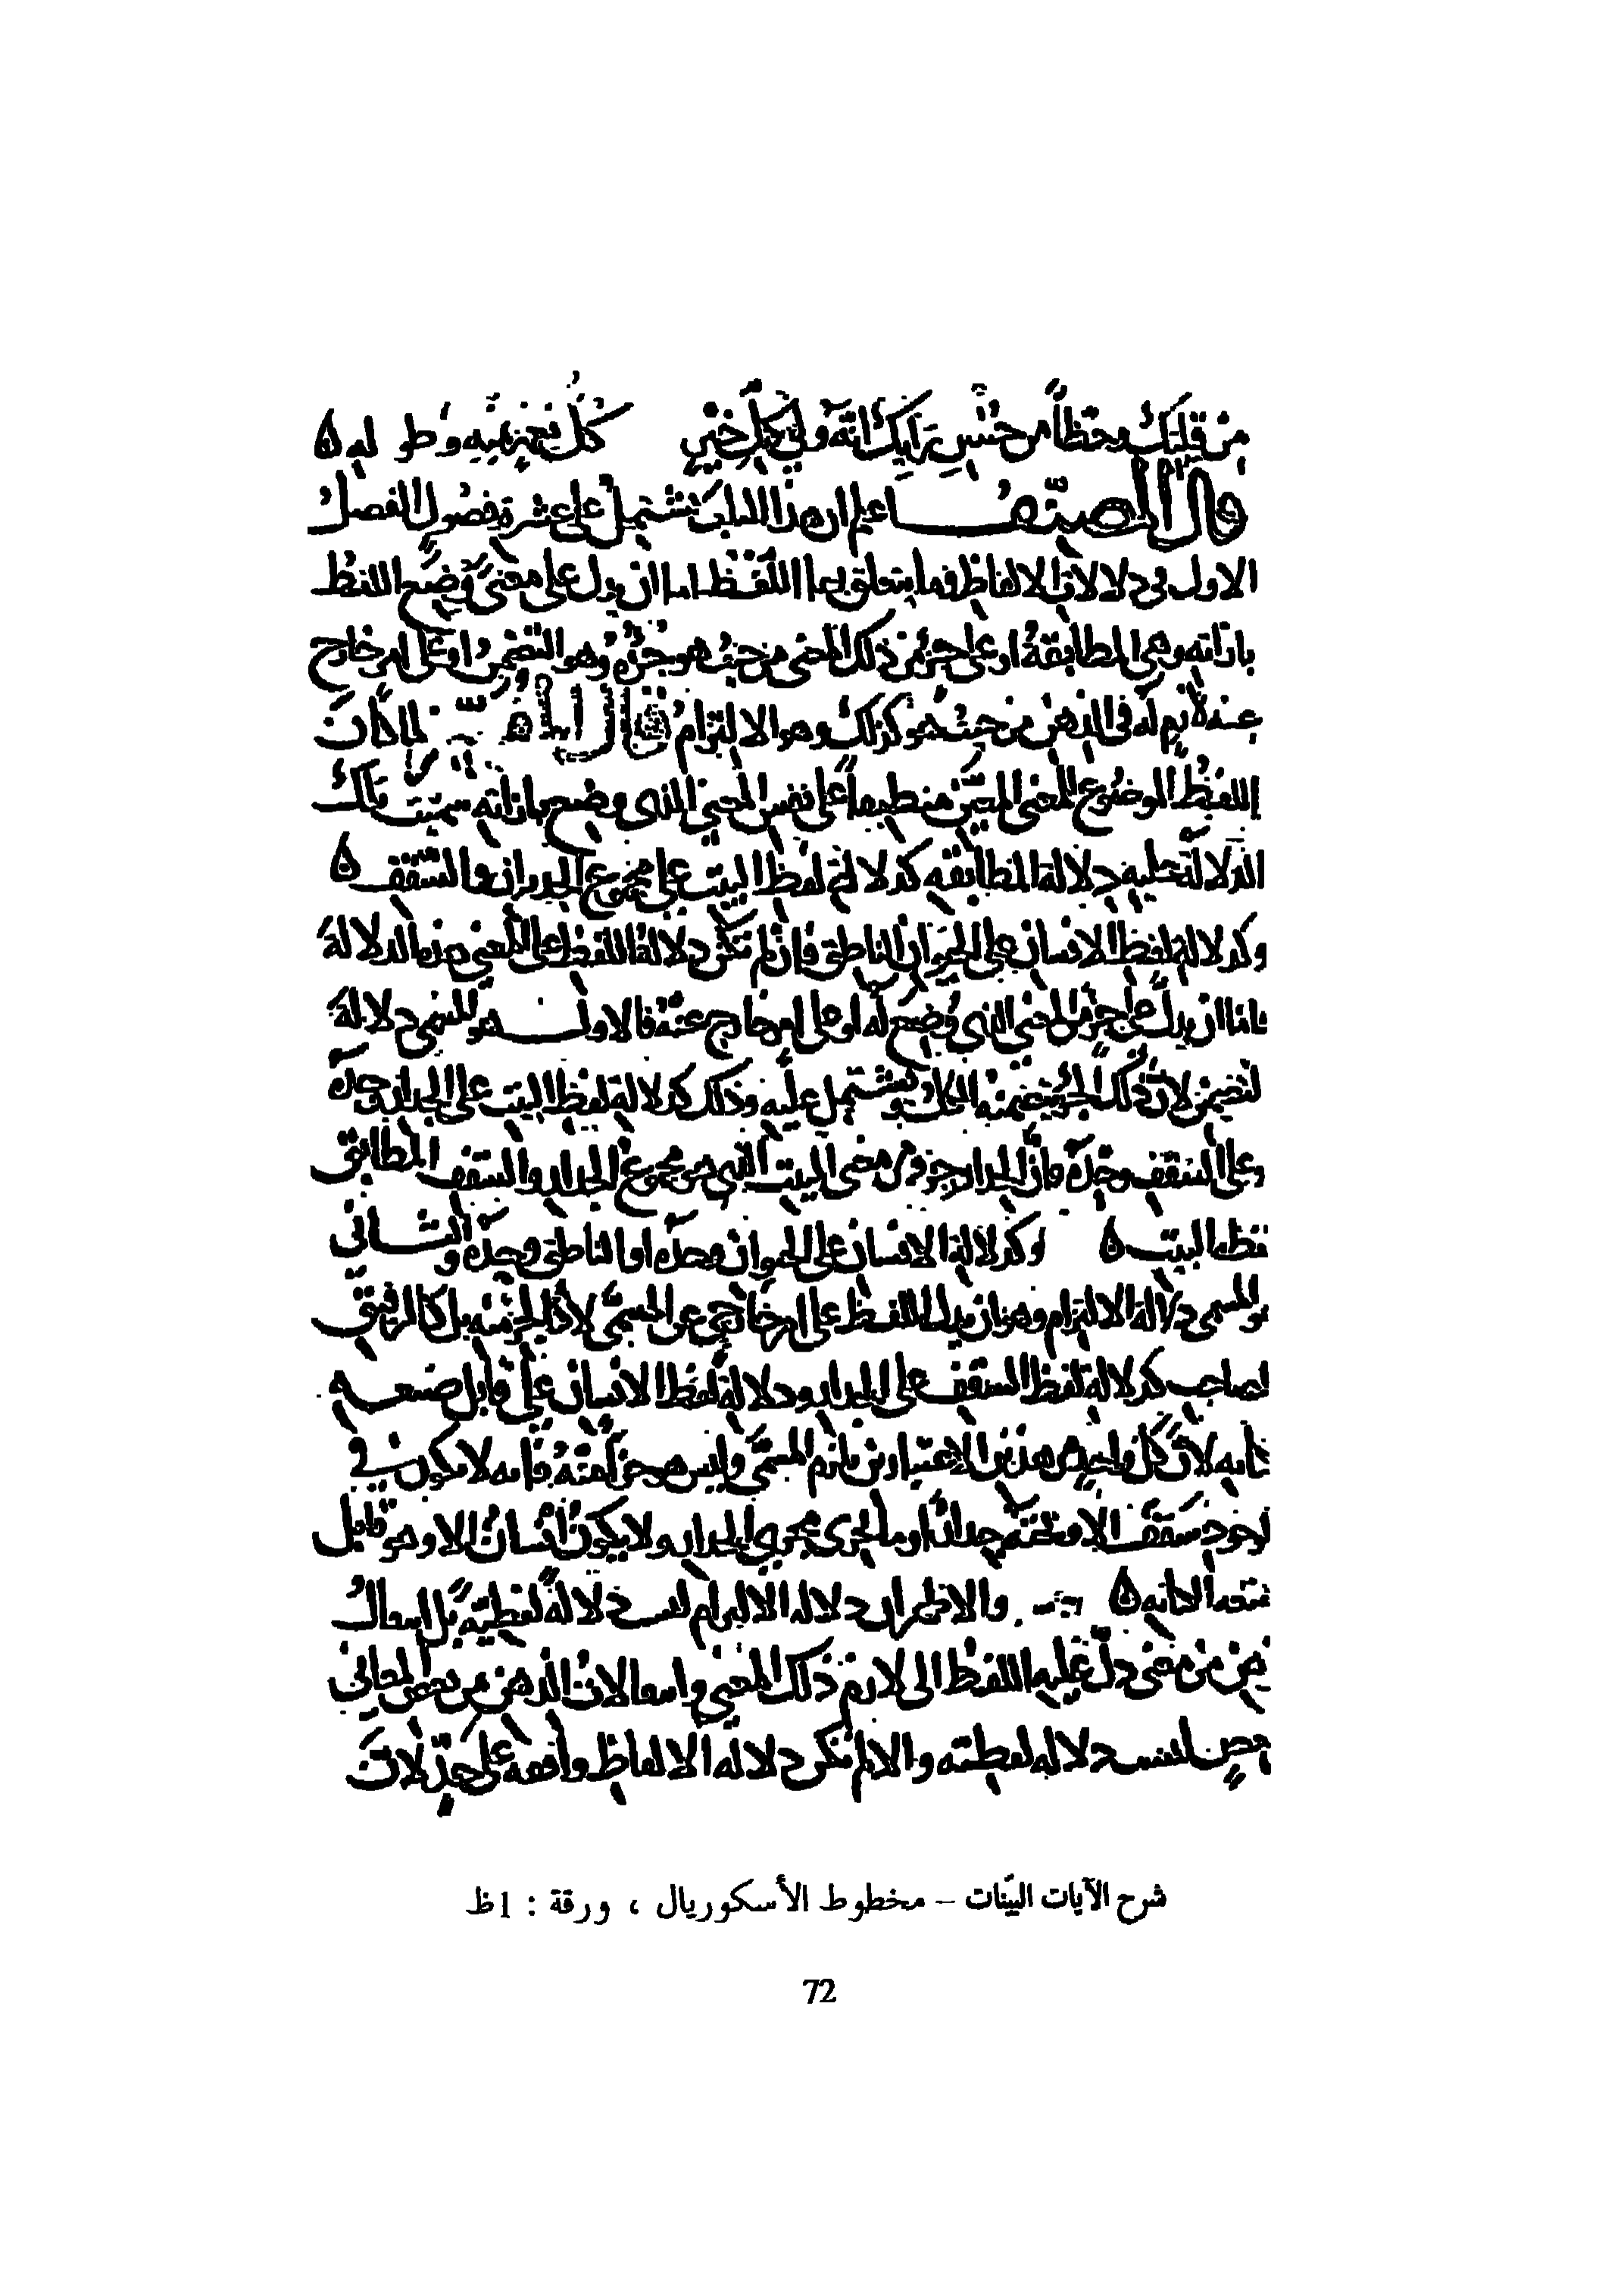 من قلبك وحظاً من حسن رأيك انه ولي كل خير
قال المصنف اعلم ان هذا الكتاب يشتمل على عشرة فصول الفصل
الاول في دلالات الالفاظ وما يتعلق بها اللفظ اما ان يدل على معنى وضع اللفظ
بازائه وهي المطابقة او على جزء من ذلك المعنى من حيث هو جزؤه وهو التضمن او على امر خارج
عنه لازم له في الذهن من حيث هو كذلك وهو الالتزام قال لما كان
اللفظ الموضوع للمعنى المعين منطبقاً على نفس المعنى الذي وضع بازائه سميت تلك
الدلالة عليه دلالة المطابقة كدلالة لفظ البيت على مجموع الجدران والسقف
وكدلالة لفظ الانسان على الحيوان الناطق فان لم تكن دلالة اللفظ على المعنى هذه الدلالة
فاما ان يدل على جزء من المعنى الذي وضع له او على امر خارج عنه فالاول هو المسمى دلالة
لتضمن لان ذلك الجزء يتضمنه الكل ويشتمل عليه وذلك كدلالة لفظ البيت على الجدار وحده
وعلى السقف وحده فان الجدار جزو من معنى البيت الذي هو مجموع الجدار والسقف المطابق
لفظ البيت وكدلالة الانسان على الحيوان وحده او الناطق وحده والثاني
هو المسمى دلالة الالتزام وهو ان يدل اللفظ على امر خارج عن المسمى لا كالجزء منه بل كالرفيق
لصاحب كدلالة لفظ السقف على الجدار ودلالة لفظ الانسان على قابل صنعة
كتابه لان كل واحد من هذين الاعتبارين يلزم المسمى وليس هو جزأ منه فانه لا يكون في
لوجود سقف الا وتحته جدار او ما يجري مجرى الجدار ولا يكون انسان الا وهو قابل
صنعة الكتابه والاظهر ان دلالة الالتزام ليست دلالة لفظية بل انتقال
ذهن من معنى دل عليه اللفظ الى لازم ذلك المعنى وانتقالات الذهن من بعض المعاني
بعض ليست دلاله لفظيه والا لم تكن دلالة الالفاظ واقفه على حد لان
شرح الآيات البيّنات – مخطوط الأسكوريال ، ورقة : 1ظ
72